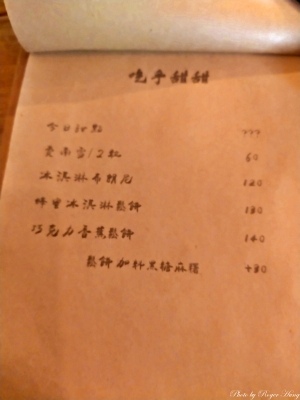 吃乎甜甜
今日甜點 ???
愛南雪/2粒 60
冰淇淋布朗尼 120
蜂蜜冰淇淋鬆餅 130
巧克力香蕉鬆餅 140
鬆餅加料黑糖麻糬 +30
Photo by Royce Hung